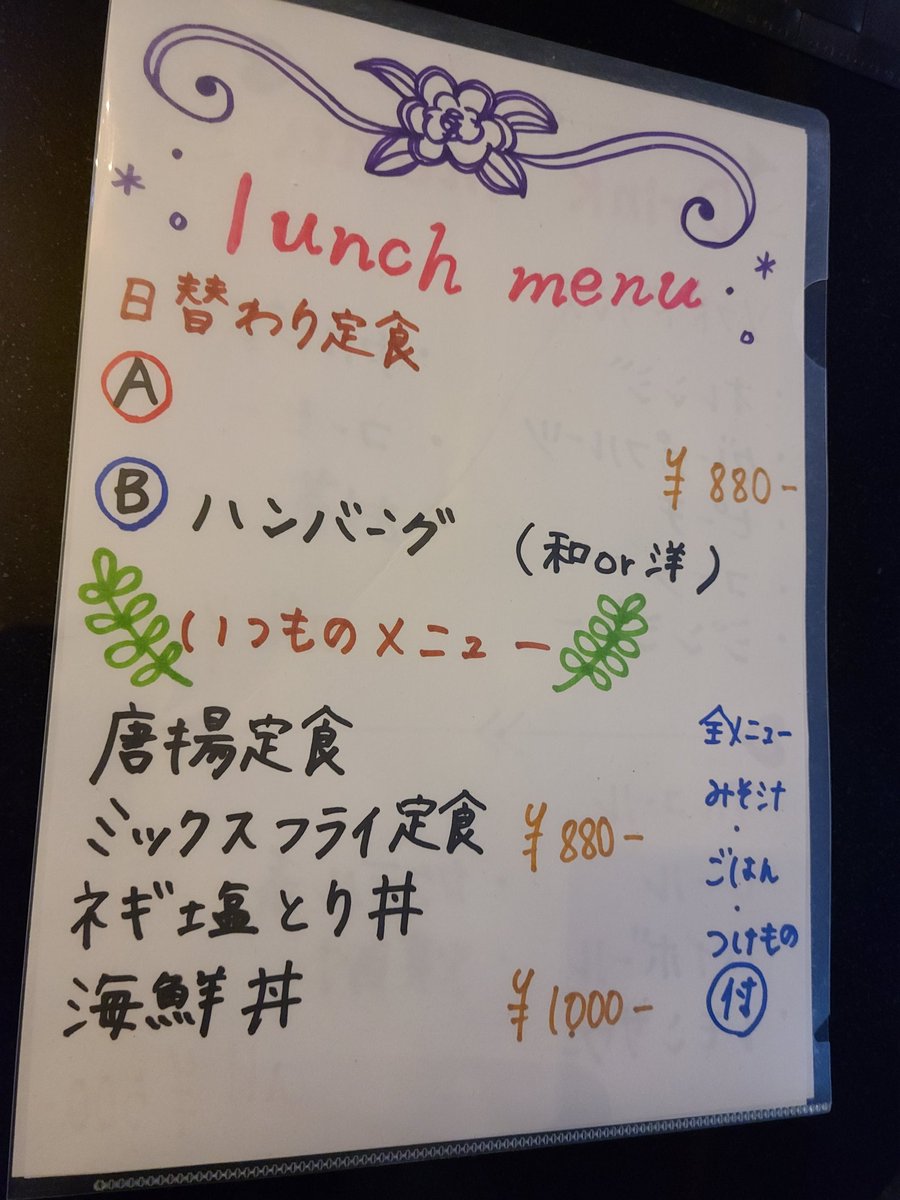 lunch menu
日替わり定食
Ⓐ
¥880-
Ⓑ ハンバーグ (和or洋)
いつものメニュー
唐揚定食
ミックスフライ定食 ¥880-
ネギ塩とり丼
海鮮丼 ¥1,000-
全メニュー
みそ汁
・
ごはん
・
つけもの
付